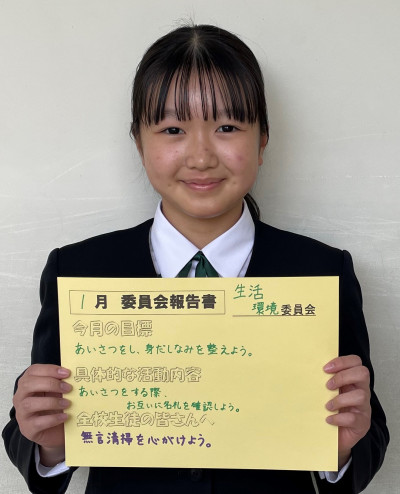 1月 委員会報告書
生活
環境委員会
今月の目標
あいさつをし、身だしなみを整えよう。
具体的な活動内容
あいさつをする際、
お互いに名札を確認しよう。
全校生徒の皆さんへ
無言清掃を心がけよう。